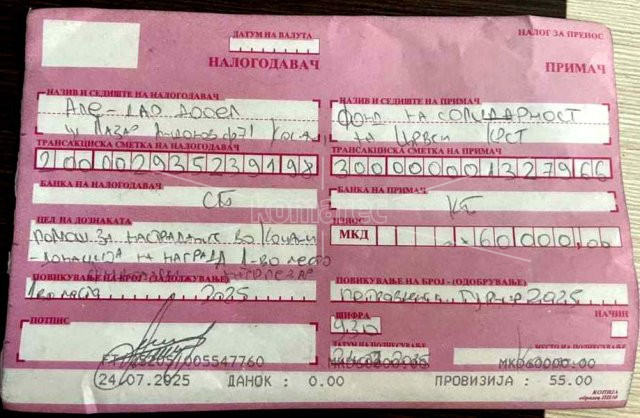 ДАТУМ НА ВАЛУТА
НАЛОГ ЗА ПРЕНОС
НАЛОГОДАВАЧ
ПРИМАЧ
НАЗИВ И СЕДИШТЕ НА НАЛОГОДАВАЧ
НАЗИВ И СЕДИШТЕ НА ПРИМАЧ
ДООЕЛ
ФОНД НА СОЛИДАРНОСТ
НА ЦРВЕН КРСТ
ТРАНСАКЦИСКА СМЕТКА НА НАЛОГОДАВАЧ
ТРАНСАКЦИСКА СМЕТКА НА ПРИМАЧ
200002935239198
300000001327966
БАНКА НА НАЛОГОДАВАЧ
БАНКА НА ПРИМАЧ
СБ
КБ
komarec
ЦЕЛ НА ДОЗНАКАТА
ИЗНОС
МКД
60000,00
ПОМОШ ЗА НАСТРАДАНИТЕ ВО КОЧАНИ
-ДОНАЦИЈА НА НАГРАДА 1-ВО МЕСТО
ПОВИКУВАЊЕ НА БРОЈ - (ЗАДОЛЖУВАЊЕ)
ПОВИКУВАЊЕ НА БРОЈ - (ОДОБРУВАЊЕ)
2025
2025
ПОТПИС
ШИФРА
НАЧИН
930
ДАТУМ НА ПОДНЕСУВАЊЕ
МЕСТО НА ПОДНЕСУВАЊЕ
МКD60000.00
24.07.2025
ДАНОК : 0.00
ПРОВИЗИЈА : 55.00
КОПИЈА
образец ПП30